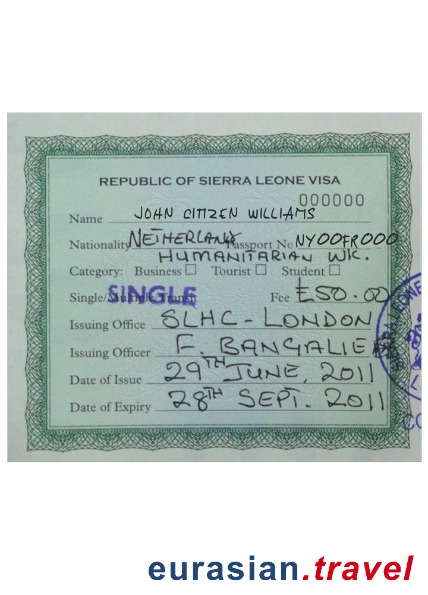 REPUBLIC OF SIERRA LEONE VISA
000000
Name JOHN CITIZEN WILLIAMS
Nationality NETHERLAND Passport No NY00FR000
HUMANITARIAN WK.
Category: Business Tourist Student
Single/Multiple/Transit SINGLE Fee £50.00
Issuing Office SLHC - LONDON
Issuing Officer F. BANGALIE
Date of Issue 29TH JUNE, 2011
Date of Expiry 28TH SEPT. 2011
eurasian.travel